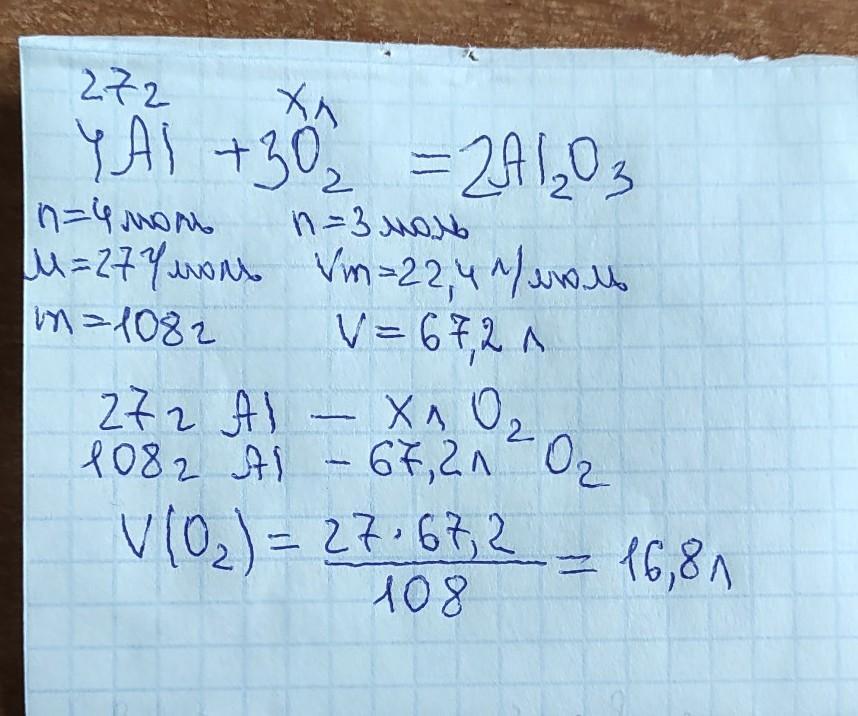 27г хл
4Al + 3O₂ = 2Al₂O₃
n=4моль n=3моль
M=27г/моль Vm=22,4 л/моль
m=108г V=67,2 л
27г Al — хл O₂
108г Al – 67,2л O₂
V(O₂) = 27·67,2
108
= 16,8л